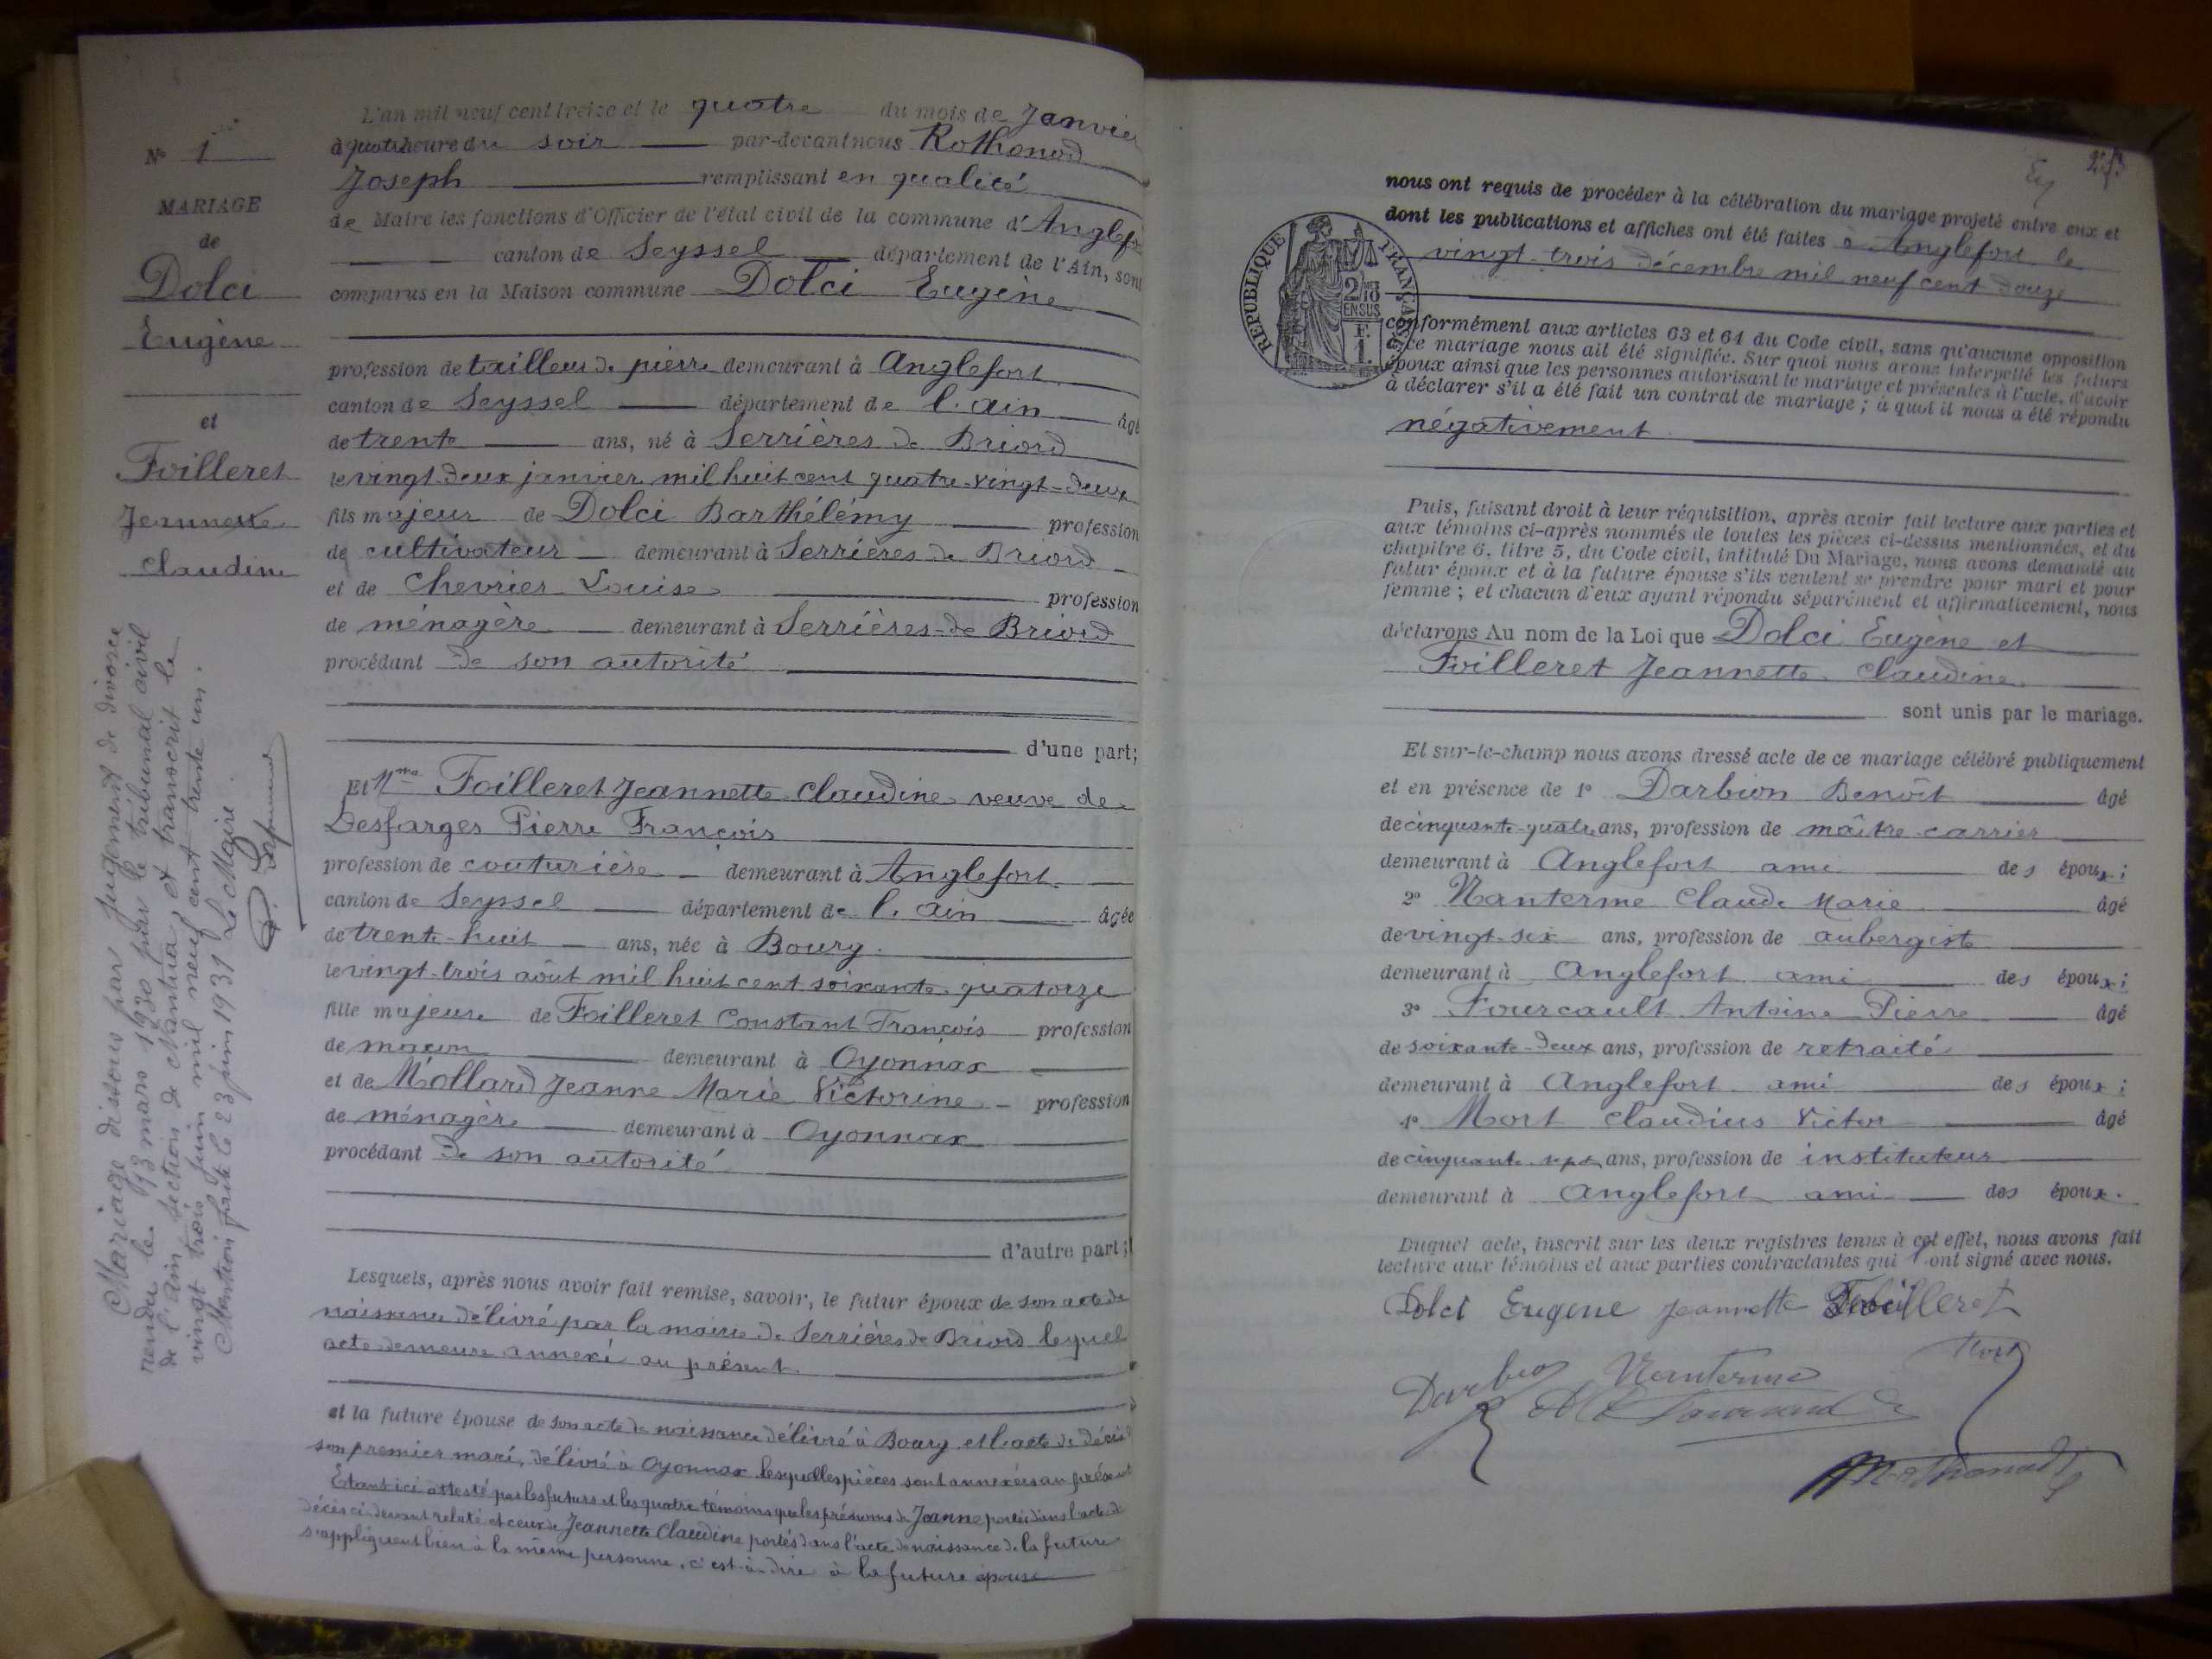 N° 1
MARIAGE
de
Dolci
Eugène
et
Foilleret
Jeannette
Claudine
Mariage dissous par jugement de divorce
rendu le 13 mars 1930 par le tribunal civil
de l'Ain section de Nantua et transcrit le
vingt trois juin mil neuf cent trente un.
Mention faite le 23 juin 1931 Le Maire
L'an mil neuf cent treize et le quatre du mois de Janvier
à quatre heure du soir par-devant nous Rothonod
Joseph remplissant en qualité
de Maire les fonctions d'Officier de l'état civil de la commune d'Anglefort
canton de Seyssel département de l'Ain, sont
comparus en la Maison commune Dolci Eugène
profession de tailleur de pierre demeurant à Anglefort
canton de Seyssel département de l'ain âgé
de trente ans, né à Serrières de Briord
le vingt-deux janvier mil huit cent quatre-vingt-deux
fils majeur de Dolci Barthélémy profession
de cultivateur demeurant à Serrières de Briord
et de Chevrier Louise profession
de ménagère demeurant à Serrières-de Briord
procédant de son autorité
d'une part;
Et Mme Foilleret Jeannette Claudine veuve de
Desfarges Pierre François
profession de couturière demeurant à Anglefort
canton de Seyssel département de l'ain âgée
de trente-huit ans, née à Bourg
le vingt-trois août mil huit cent soixante quatorze
fille majeure de Foilleret Constant François profession
de maçon demeurant à Oyonnax
et de Mollard Jeanne Marie Victorine profession
de ménagère demeurant à Oyonnax
procédant de son autorité
d'autre part;
Lesquels, après nous avoir fait remise, savoir, le futur époux de son acte de
naissance délivré par la mairie de Serrières de Briord lequel
acte demeure annexé au présent
et la future épouse de son acte de naissance délivré à Bourg et l'acte de décès
son premier mari, délivré à Oyonnax lesquelles pièces sont annexées au présent
Etant ici attesté par les futurs et les quatre témoins que les prénoms de Jeanne portés dans l'acte de
décès ci-devant relaté et ceux de Jeannette Claudine portés dans l'acte de naissance de la future
s'appliquent bien à la même personne, c'est-à-dire à la future épouse
REPUBLIQUE FRANÇAISE
2/10
EN SUS
F.
1.
nous ont requis de procéder à la célébration du mariage projeté entre eux et
dont les publications et affiches ont été faites à Anglefort le
vingt-trois décembre mil neuf cent douze
conformément aux articles 63 et 64 du Code civil, sans qu'aucune opposition
à ce mariage nous ait été signifiée. Sur quoi nous avons interpellé les futurs
époux ainsi que les personnes autorisant le mariage et présentes à l'acte, d'avoir
à déclarer s'il a été fait un contrat de mariage ; à quoi il nous a été répondu
négativement
Puis, faisant droit à leur réquisition, après avoir fait lecture aux parties et
aux témoins ci-après nommés de toutes les pièces ci-dessus mentionnées, et du
chapitre 6, titre 5, du Code civil, intitulé Du Mariage, nous avons demandé au
futur époux et à la future épouse s'ils veulent se prendre pour mari et pour
femme ; et chacun d'eux ayant répondu séparément et affirmativement, nous
déclarons Au nom de la Loi que Dolci Eugène et
Foilleret Jeannette Claudine
sont unis par le mariage.
Et sur-le-champ nous avons dressé acte de ce mariage célébré publiquement
et en présence de 1° Darbion Benoît âgé
de cinquante-quatre ans, profession de maître carrier
demeurant à Anglefort ami des époux ;
2° Nanterme Claude Marie âgé
de vingt-six ans, profession de aubergiste
demeurant à Anglefort ami des époux ;
3° Fourcault Antoine Pierre âgé
de soixante-deux ans, profession de retraité
demeurant à Anglefort ami des époux ;
4° Mort Claudius Victor âgé
de cinquante sept ans, profession de instituteur
demeurant à Anglefort ami des époux.
Duquel acte, inscrit sur les deux registres tenus à cet effet, nous avons fait
lecture aux témoins et aux parties contractantes qui ont signé avec nous.
Dolci Eugène Jeannette Foilleret
Mort
Nanterme